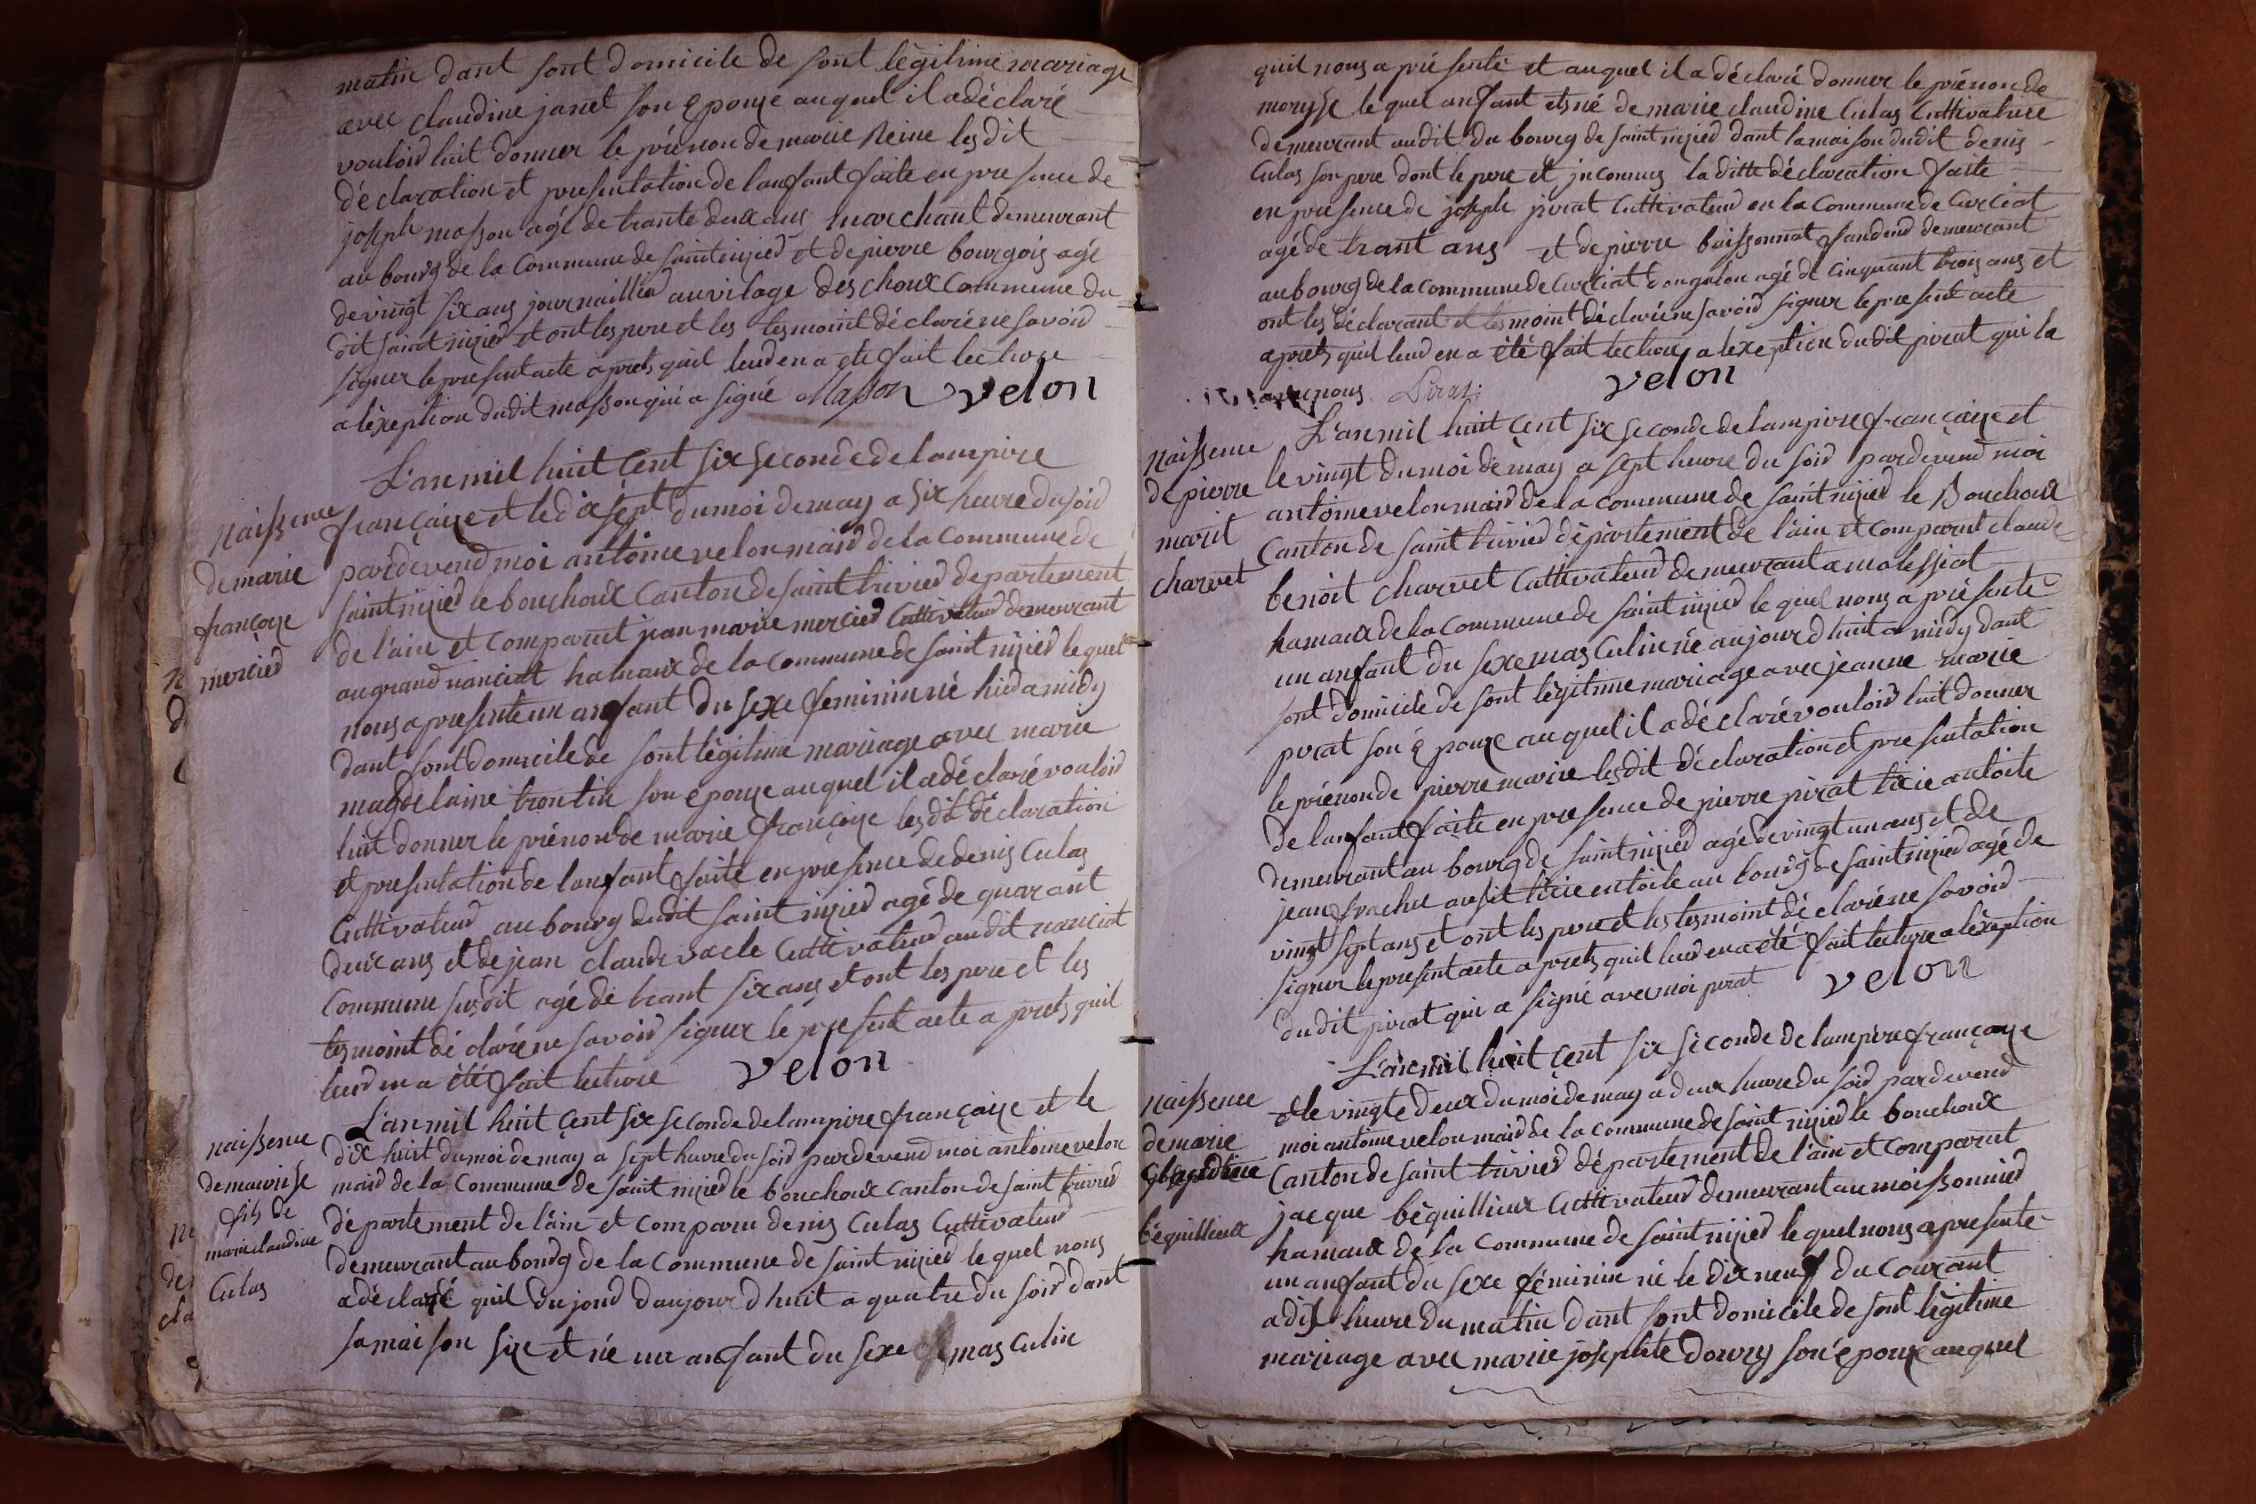 matin dant sont domicile de sont légitime mariage
avec claudine janet son épouze auquel il a déclaré
vouloir luit donner le prénon de marie Reine lesdit
déclaration et presentation de lanfant faite en presence de
joseph masson agé de trante deux ans marchant demeurant
au bourg de la commune de saint nizier et de pierre bourgois agé
de vingt six ans journaillier au vilage des choux commune du
dit saint nizier et ont les pere et les tesmoint déclaré ne savoir
signer le present acte aprets quil leur en a ete fait lecture
a lexeption dudit masson qui a signé Masson velon
L'an mil huit cent six seconde de lampire
naissence
de marie
françoize
mercier
françaize et le dix sept du moi de may a six heure du soir
pardevend moi antoine velon mair de la commune de
saint nizier le bouchoux canton de saint trivier departement
de l'ain et comparut jean marie mercier cuttivateur demeurant
au grand nanciat hamaux de la commune de saint nizier le quel
nous a presenté un anfant du sexe feminin né hier a midy
dant sont domicile de sont légitime mariage avec marie
magdelaine trontin son épouze auquel il a déclaré vouloir
luit donner le prénon de marie françoize lesdit déclaration
et presentation de lanfant faite en présence de denis Culas
Cuttivateur au bourg dudit saint nizier agé de quarant
deux ans et de jean claude vacle Cuttivateur audit nanciat
commune susdit agé de trant six ans et ont les pere et les
tesmoint déclaré ne savoir signer le present acte aprets quil
leur en a été fait lecture velon
naissence
de maurisse
fils de
marie claudine
Culas
L'an mil huit cent six seconde de lampire françaize et le
dix huit du moi de may a sept heure du soir pardevend moi antoine velon
mair de la commune de saint nizier le bouchoux canton de saint trivier
département de l'ain et comparu denis Culas Cuttivateur
demeurant au bourg de la commune de saint nizier le quel nous
a déclaré quil du jour d'aujourdhuit a quatre du soir dant
sa maison size et né un anfant du sexe masculin
quil nous a présenté et auquel il a déclaré donner le prénon de
morysse le quel anfant ets né de marie claudine Culas Cuttivatrice
demeurant audit du bourg de saint nizier dant la maison dudit denis
Culas son pere dont le pere et inconnus la ditte déclaration faite
en presence de joseph pirat Cuttivateur en la commune de Curciat
agé de trant ans et de pierre buissonnat fandeur demeurant
au bourg de la commune de Curciat dongalon agé de cinquant trois ans et
ont les déclarant et tesmoint déclaré ne savoir signer le present acte
aprets quil leur en a été fait lecture a lexeption dudit pirat qui la
avec nous Pirat velon
naissence
de pierre
marit
charvet
L'an mil huit cent six seconde de lampire françaize et
le vingt du moi de may a sept heure du soir pardevend moi
antoine velon mair de la commune de saint nizier le Bouchoux
Canton de saint trivier département de l'ain et comparut claude
benoit charvet Cuttivateur demeurant a malessiat
hamaux de la commune de saint nizier le quel nous a présenté
un anfant du sexe masculin né aujourdhuit a midy dant
sont domicile de sont légitime mariage avec jeanne marie
pirat son épouze auquel il a déclaré vouloir luit donner
le prénon de pierre marie lesdit déclaration et presentation
de lanfant faite en presence de pierre pirat tixie antoile
demeurant au bourg de saint nizier agé de vingt un ans et de
jean frachet ausit tixie entoile au bourg de saint nizier agé de
vingt sept ans et ont les pere et les tesmoint déclaré ne savoir
signer le present acte aprets quil leur en a été fait lecture a lexeption
dudit pirat qui a signé avec moi pirat velon
naissence
de marie
Claudine
béquillieux
L'an mil huit cent six seconde de lampire françaize
et le vingte deux du moi de may a deux heure du soir pardevend
moi antoine velon mair de la commune de saint nizier le bouchoux
Canton de saint trivier département de l'ain et comparut
jacque béquillieux Cuttivateur demeurant au moissonnier
hamaux de la commune de saint nizier le quel nous a presenté
un anfant du sexe féminin né le dix neuf du courant
a dix heure du matin dant sont domicile de sont légitime
mariage avec marie josephte doury son épouze auquel